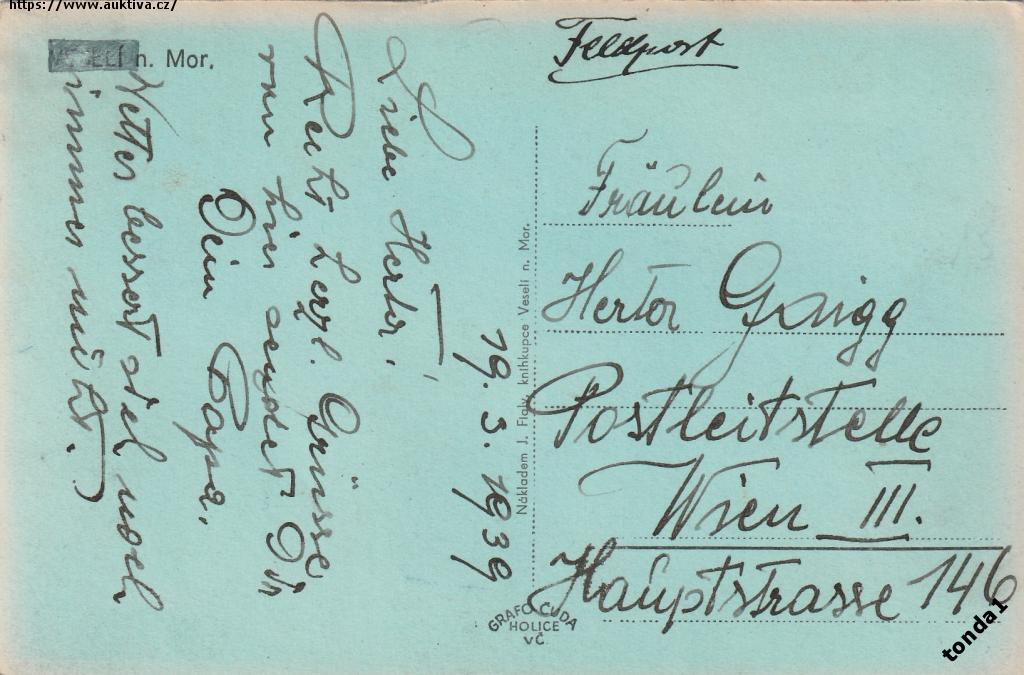 https://www.auktiva.cz/
VESELÍ n. Mor.
Feldpost
19. 3. 1939
Liebe Herta!
Recht herzl. Grüsse
von hier sendet Dir
Dein Papa.
Wetter bessert sich noch
immer nicht.
Nákladem J. knihkupce Veselí n. Mor.
Fräulein
Herta
Postleitstelle
Wien III.
Hauptstrasse 146
GRAFO ČUDA
HOLICE
VČ.
tonda1